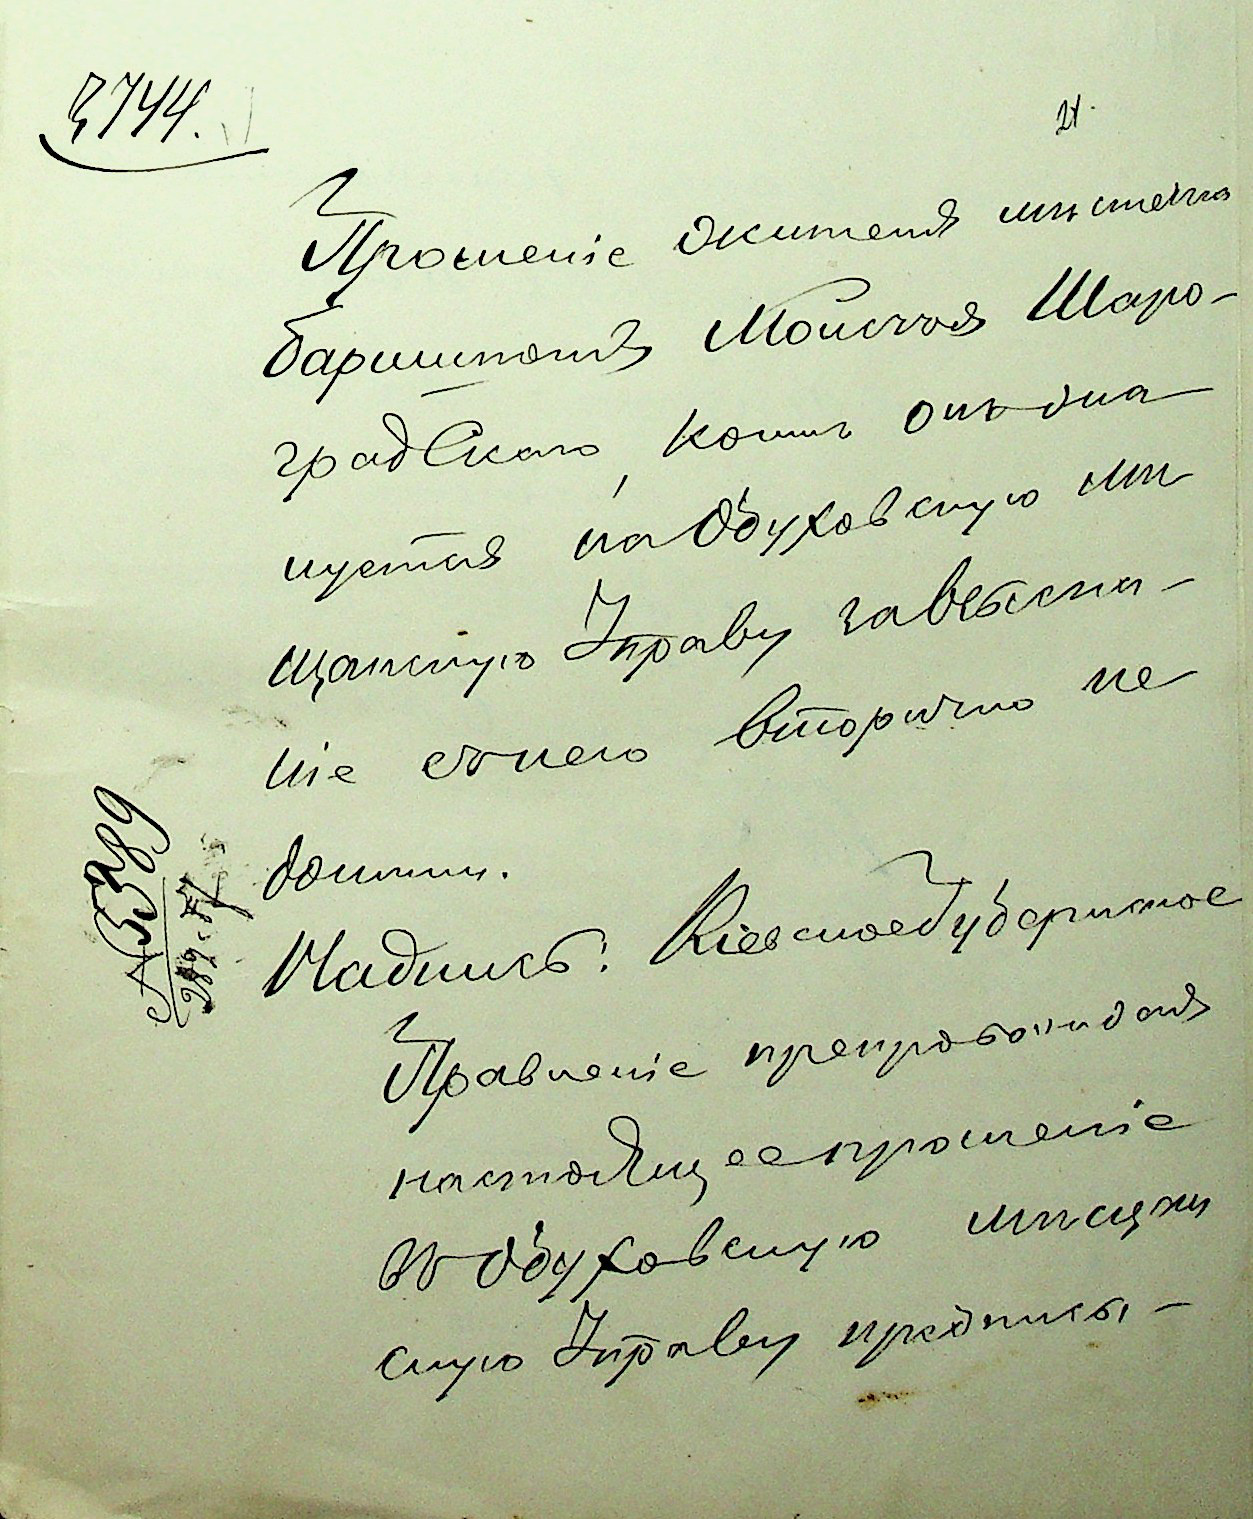 3744.
21.
Прошеніе жителя мѣстечка
Барышполя Моисея Шаро-
градскаго, коимъ онъ жа
луется на Обуховскую мѣ
щанскую Управу за взыска-
ніе съ него вторично не
доимки.
№ 5389
Надпись: Кіевское Губернское
Правленіе препровождая
настоящее прошеніе
въ Обуховскую мѣщан
скую Управу предписы-